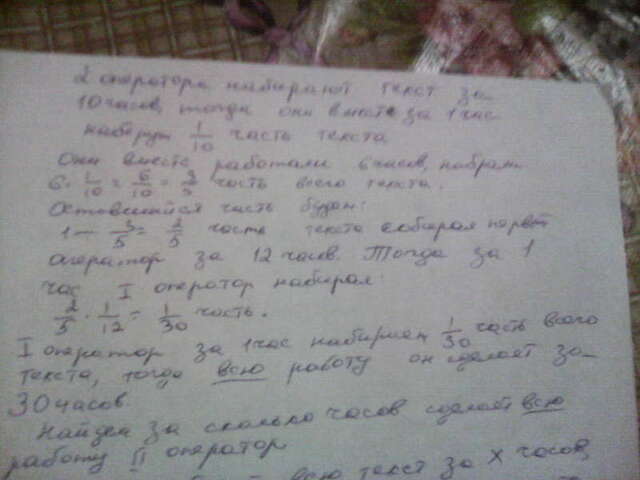 2 оператора набирают текст за
10 часов, тогда они вместе за 1 час
наберут 1/10 часть текста
Они вместе работали 6 часов, набрали
6·1/10 = 6/10 = 3/5 часть всего текста.
Оставшийся часть будет:
1 − 3/5 = 2/5 часть текста набирал первый
оператор за 12 часов. Тогда за 1
час I оператор набирал:
2/5 · 1/12 = 1/30 часть.
I оператор за 1 час набирает 1/30 часть всего
текста, тогда всю работу он сделает за
30 часов.
Найдем за сколько часов сделает всю
работу II оператор
всю текст за x часов,